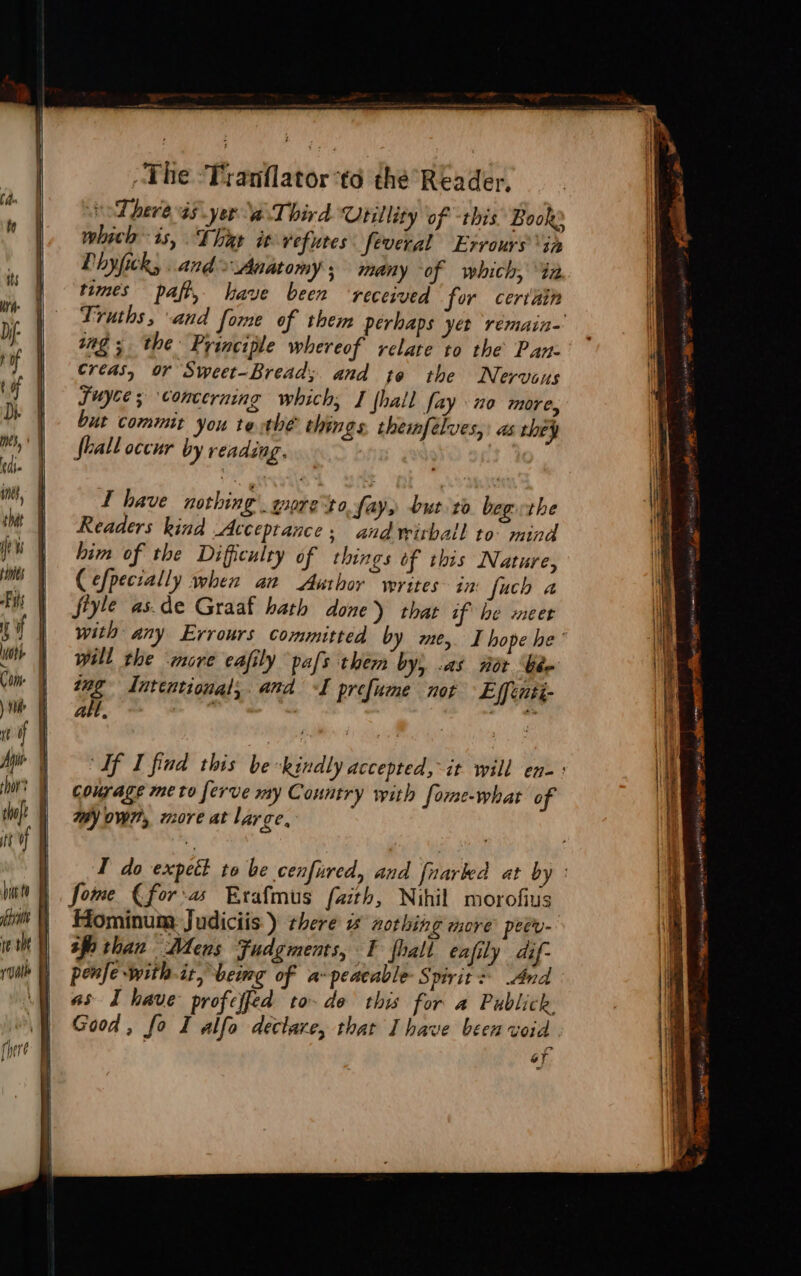 The Tranſlator to the Reader.
There is yet a Third Utillity of this Book;
which is, That it refutes ſeveral Errours in
Phyſick, and Anatomy; many of which, in
times paſt, have been received for certain
Truths, and ſome of them perhaps yet remain-
ing; the Principle whereof relate to the Pan-
creas, or Sweet-Bread; and to the Nervous
Juyce; concerning which, I ſhall ſay no more,
but commit you to the things themſelves, as they
ſhall occur by reading.
I have nothing more to ſay, but to beg the
Readers kind Acceptance; and withall to mind
him of the Difficulty of things of this Nature,
(eſpecially when an Author writes in ſuch a
ſtyle as de Graaf hath done) that if he meet
with any Errours committed by me, I hope he
will the more eaſily paſs them by, as not be-
ing Intentional; and I preſume not Eſſenti-
all.
If I find this be kindly accepted, it will en-
courage me to ſerve my Country with ſome-what of
my own, more at large.
I do expect to be cenſured, and ſnarled at by
ſome (for as Eraſmus ſaith, Nihil moroſius
Hominum Judiciis) there is nothing more peev-
iſh than Mens Judgments, I ſhall eaſily diſ-
penſe with it, being of a peaceable Spirit: And
as I have profeſſed to do this for a Publick
Good, ſo I alſo declare, that I have been void
of